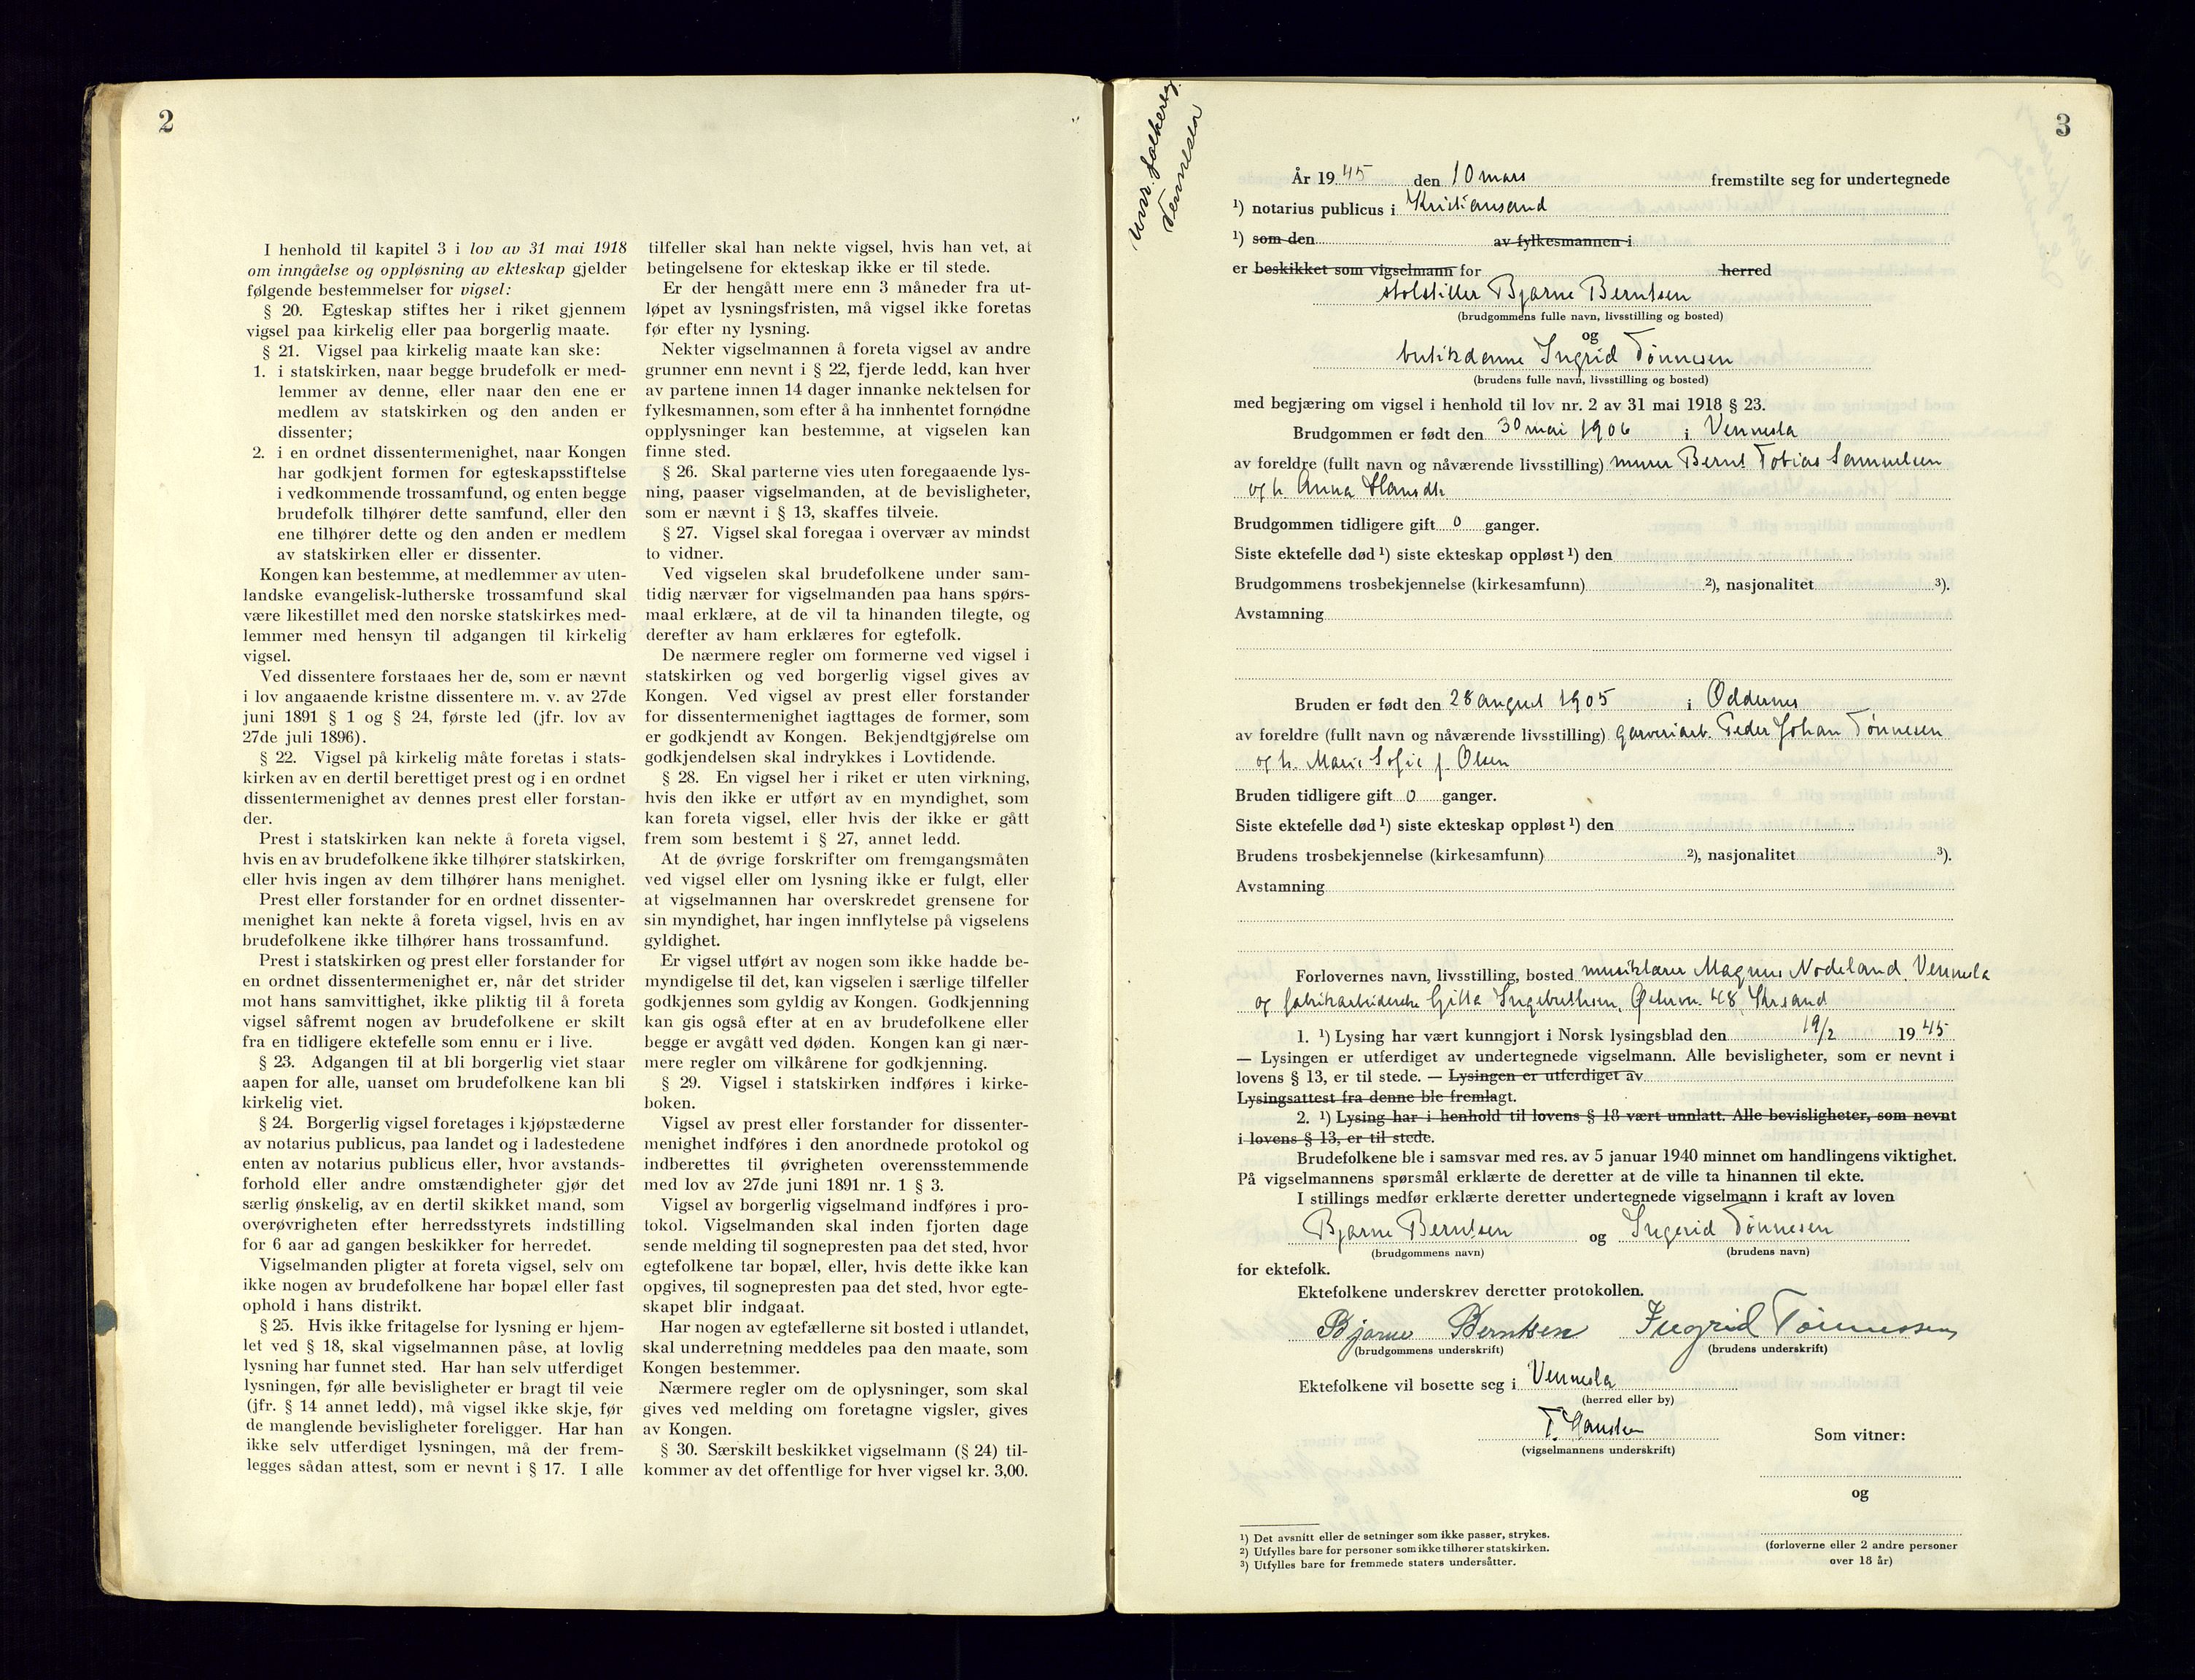 2
I henhold til kapitel 3 i lov av 31 mai 1918
om inngåelse og oppløsning av ekteskap gjelder
følgende bestemmelser for vigsel:
§ 20. Egteskap stiftes her i riket gjennem
vigsel paa kirkelig eller paa borgerlig maate.
§ 21. Vigsel paa kirkelig maate kan ske:
1. i statskirken, naar begge brudefolk er med-
lemmer av denne, eller naar den ene er
medlem av statskirken og den anden er
dissenter;
2. i en ordnet dissentermenighet, naar Kongen
har godkjent formen for egteskapsstiftelse
i vedkommende trossamfund, og enten begge
brudefolk tilhører dette samfund, eller den
ene tilhører dette og den anden er medlem
av statskirken eller er dissenter.
Kongen kan bestemme, at medlemmer av uten-
landske evangelisk-lutherske trossamfund skal
være likestillet med den norske statskirkes med-
lemmer med hensyn til adgangen til kirkelig
vigsel.
Ved dissentere forstaaes her de, som er nævnt
i lov angaaende kristne dissentere m. v. av 27de
juni 1891 § 1 og § 24, første led (jfr. lov av
27de juli 1896).
§ 22. Vigsel på kirkelig måte foretas i stats-
kirken av en dertil berettiget prest og i en ordnet
dissentermenighet av dennes prest eller forstan-
der.
Prest i statskirken kan nekte å foreta vigsel,
hvis en av brudefolkene ikke tilhører statskirken,
eller hvis ingen av dem tilhører hans menighet.
Prest eller forstander for en ordnet dissenter-
menighet kan nekte å foreta vigsel, hvis en av
brudefolkene ikke tilhører hans trossamfund.
Prest i statskirken og prest eller forstander for
en ordnet dissentermenighet er, når det strider
mot hans samvittighet, ikke pliktig til å foreta
vigsel såfremt nogen av brudefolkene er skilt
fra en tidligere ektefelle som ennu er i live.
§ 23. Adgangen til at bli borgerlig viet staar
aapen for alle, uanset om brudefolkene kan bli
kirkelig viet.
§ 24. Borgerlig vigsel foretages i kjøpstæderne
av notarius publicus, paa landet og i ladestedene
enten av notarius publicus eller, hvor avstands-
forhold eller andre omstændigheter gjør det
særlig ønskelig, av en dertil skikket mand, som
overøvrigheten efter herredsstyrets indstilling
for 6 aar ad gangen beskikker for herredet.
Vigselmanden pligter at foreta vigsel, selv om
ikke nogen av brudefolkene har bopæl eller fast
ophold i hans distrikt.
§ 25. Hvis ikke fritagelse for lysning er hjem-
let ved § 18, skal vigselmannen påse, at lovlig
lysning har funnet sted. Har han selv utferdiget
lysningen, før alle bevisligheter er bragt til veie
(jfr. § 14 annet ledd), må vigsel ikke skje, før
de manglende bevisligheter foreligger. Har han
ikke selv utferdiget lysningen, må der frem-
legges sådan attest, som er nevnt i § 17. I alle
tilfeller skal han nekte vigsel, hvis han vet, at
betingelsene for ekteskap ikke er til stede.
Er der hengått mere enn 3 måneder fra ut-
løpet av lysningsfristen, må vigsel ikke foretas
før efter ny lysning.
Nekter vigselmannen å foreta vigsel av andre
grunner enn nevnt i § 22, fjerde ledd, kan hver
av partene innen 14 dager innanke nektelsen for
fylkesmannen, som efter å ha innhentet fornødne
opplysninger kan bestemme, at vigselen kan
finne sted.
§ 26. Skal parterne vies uten foregaaende lys-
ning, paaser vigselmanden, at de bevisligheter,
som er nævnt i § 13, skaffes tilveie.
§ 27. Vigsel skal foregaa i overvær av mindst
to vidner.
Ved vigselen skal brudefolkene under sam-
tidig nærvær for vigselmanden paa hans spørs-
maal erklære, at de vil ta hinanden tilegte, og
derefter av ham erklæres for egtefolk.
De nærmere regler om formerne ved vigsel i
statskirken og ved borgerlig vigsel gives av
Kongen. Ved vigsel av prest eller forstander
for dissentermenighet iagttages de former, som
er godkjendt av Kongen. Bekjendtgjørelse om
godkjendelsen skal indrykkes i Lovtidende.
§ 28. En vigsel her i riket er uten virkning,
hvis den ikke er utført av en myndighet, som
kan foreta vigsel, eller hvis der ikke er gått
frem som bestemt i § 27, annet ledd.
At de øvrige forskrifter om fremgangsmåten
ved vigsel eller om lysning ikke er fulgt, eller
at vigselmannen har overskredet grensene for
sin myndighet, har ingen innflytelse på vigselens
gyldighet.
Er vigsel utført av nogen som ikke hadde be-
myndigelse til det, kan vigselen i særlige tilfeller
godkjennes som gyldig av Kongen. Godkjenning
kan gis også efter at en av brudefolkene eller
begge er avgått ved døden. Kongen kan gi nær-
mere regler om vilkårene for godkjenning.
§ 29. Vigsel i statskirken indføres i kirke-
boken.
Vigsel av prest eller forstander for dissenter-
menighet indføres i den anordnede protokol og
indberettes til øvrigheten overensstemmende
med lov av 27de juni 1891 nr. 1 § 3.
Vigsel av borgerlig vigselmand indføres i pro-
tokol. Vigselmanden skal inden fjorten dage
sende melding til sognepresten paa det sted, hvor
egtefolkene tar bopæl, eller, hvis dette ikke kan
opgives, til sognepresten paa det sted, hvor egte-
skapet blir indgaat.
Har nogen av egtefællerne sit bosted i utlandet,
skal underretning meddeles paa den maate, som
Kongen bestemmer.
Nærmere regler om de oplysninger, som skal
gives ved melding om foretagne vigsler, gives
av Kongen.
§ 30. Særskilt beskikket vigselmann (§ 24) til-
kommer av det offentlige for hver vigsel kr. 3,00.
Vennesla
3
År 1945 den 10 mars fremstilte seg for undertegnede
1) notarius publicus i Kristiansand
1) som den av fylkesmannen i
er beskikket som vigselmann for herred
stolstiller Bjarne Berntsen
(brudgommens fulle navn, livsstilling og bosted)
og
butikdame Ingrid Tönnesen
(brudens fulle navn, livsstilling og bosted)
med begjæring om vigsel i henhold til lov nr. 2 av 31 mai 1918 § 23.
Brudgommen er født den 30 mai 1906 i Vennesla
av foreldre (fullt navn og nåværende livsstilling) murer Bernt Tobias Samuelsen
og h. Anna Hansdtr
Brudgommen tidligere gift 0 ganger.
Siste ektefelle død 1) siste ekteskap oppløst 1) den
Brudgommens trosbekjennelse (kirkesamfunn) 2), nasjonalitet 3).
Avstamning
Bruden er født den 28 august 1905 i Oddernes
av foreldre (fullt navn og nåværende livsstilling) garveriarb. Peder Johan Tönnesen
og h. Marie Sofie f. Olsen
Bruden tidligere gift 0 ganger.
Siste ektefelle død 1) siste ekteskap oppløst 1) den
Brudens trosbekjennelse (kirkesamfunn) 2), nasjonalitet 3).
Avstamning
Forlovernes navn, livsstilling, bosted musiklærer Magnus Nodeland, Vennesla
og fabrikarbeiderske Gitta Ingebrethsen, Østervn. 48 Krsand
1. 1) Lysing har vært kunngjort i Norsk lysingsblad den 19/2 1945
— Lysingen er utferdiget av undertegnede vigselmann. Alle bevisligheter, som er nevnt i
lovens § 13, er til stede. — Lysingen er utferdiget av
Lysingsattest fra denne ble fremlagt.
2. 1) Lysing har i henhold til lovens § 18 vært unnlatt. Alle bevisligheter, som nevnt
i lovens § 13, er til stede.
Brudefolkene ble i samsvar med res. av 5 januar 1940 minnet om handlingens viktighet.
På vigselmannens spørsmål erklærte de deretter at de ville ta hinannen til ekte.
I stillings medfør erklærte deretter undertegnede vigselmann i kraft av loven
Bjarne Berntsen og Ingerid Tönnesen
(brudgommens navn) (brudens navn)
for ektefolk.
Ektefolkene underskrev deretter protokollen.
Bjarne Berntsen Ingrid Tönnessen
(brudgommens underskrift) (brudens underskrift)
Ektefolkene vil bosette seg i Vennesla
(herred eller by)
T. Hansten
(vigselmannens underskrift)
Som vitner:
og
(forloverne eller 2 andre personer
over 18 år)
1) Det avsnitt eller de setninger som ikke passer, strykes.
2) Utfylles bare for personer som ikke tilhører statskirken.
3) Utfylles bare for fremmede staters undersåtter.